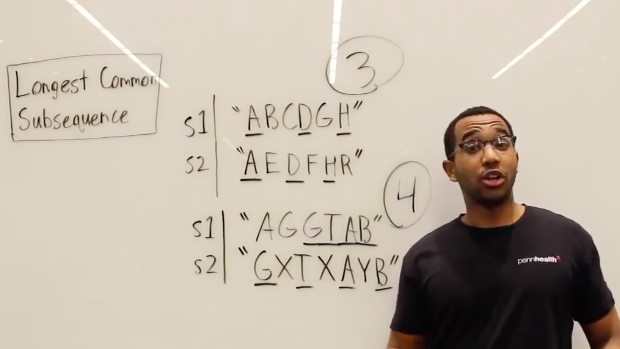 Longest Common
Subsequence
3
s1 "ABCDGH"
s2 "AEDFHR"
4
s1 "AGGTAB"
s2 "GXTXAYB"
pennhealthx